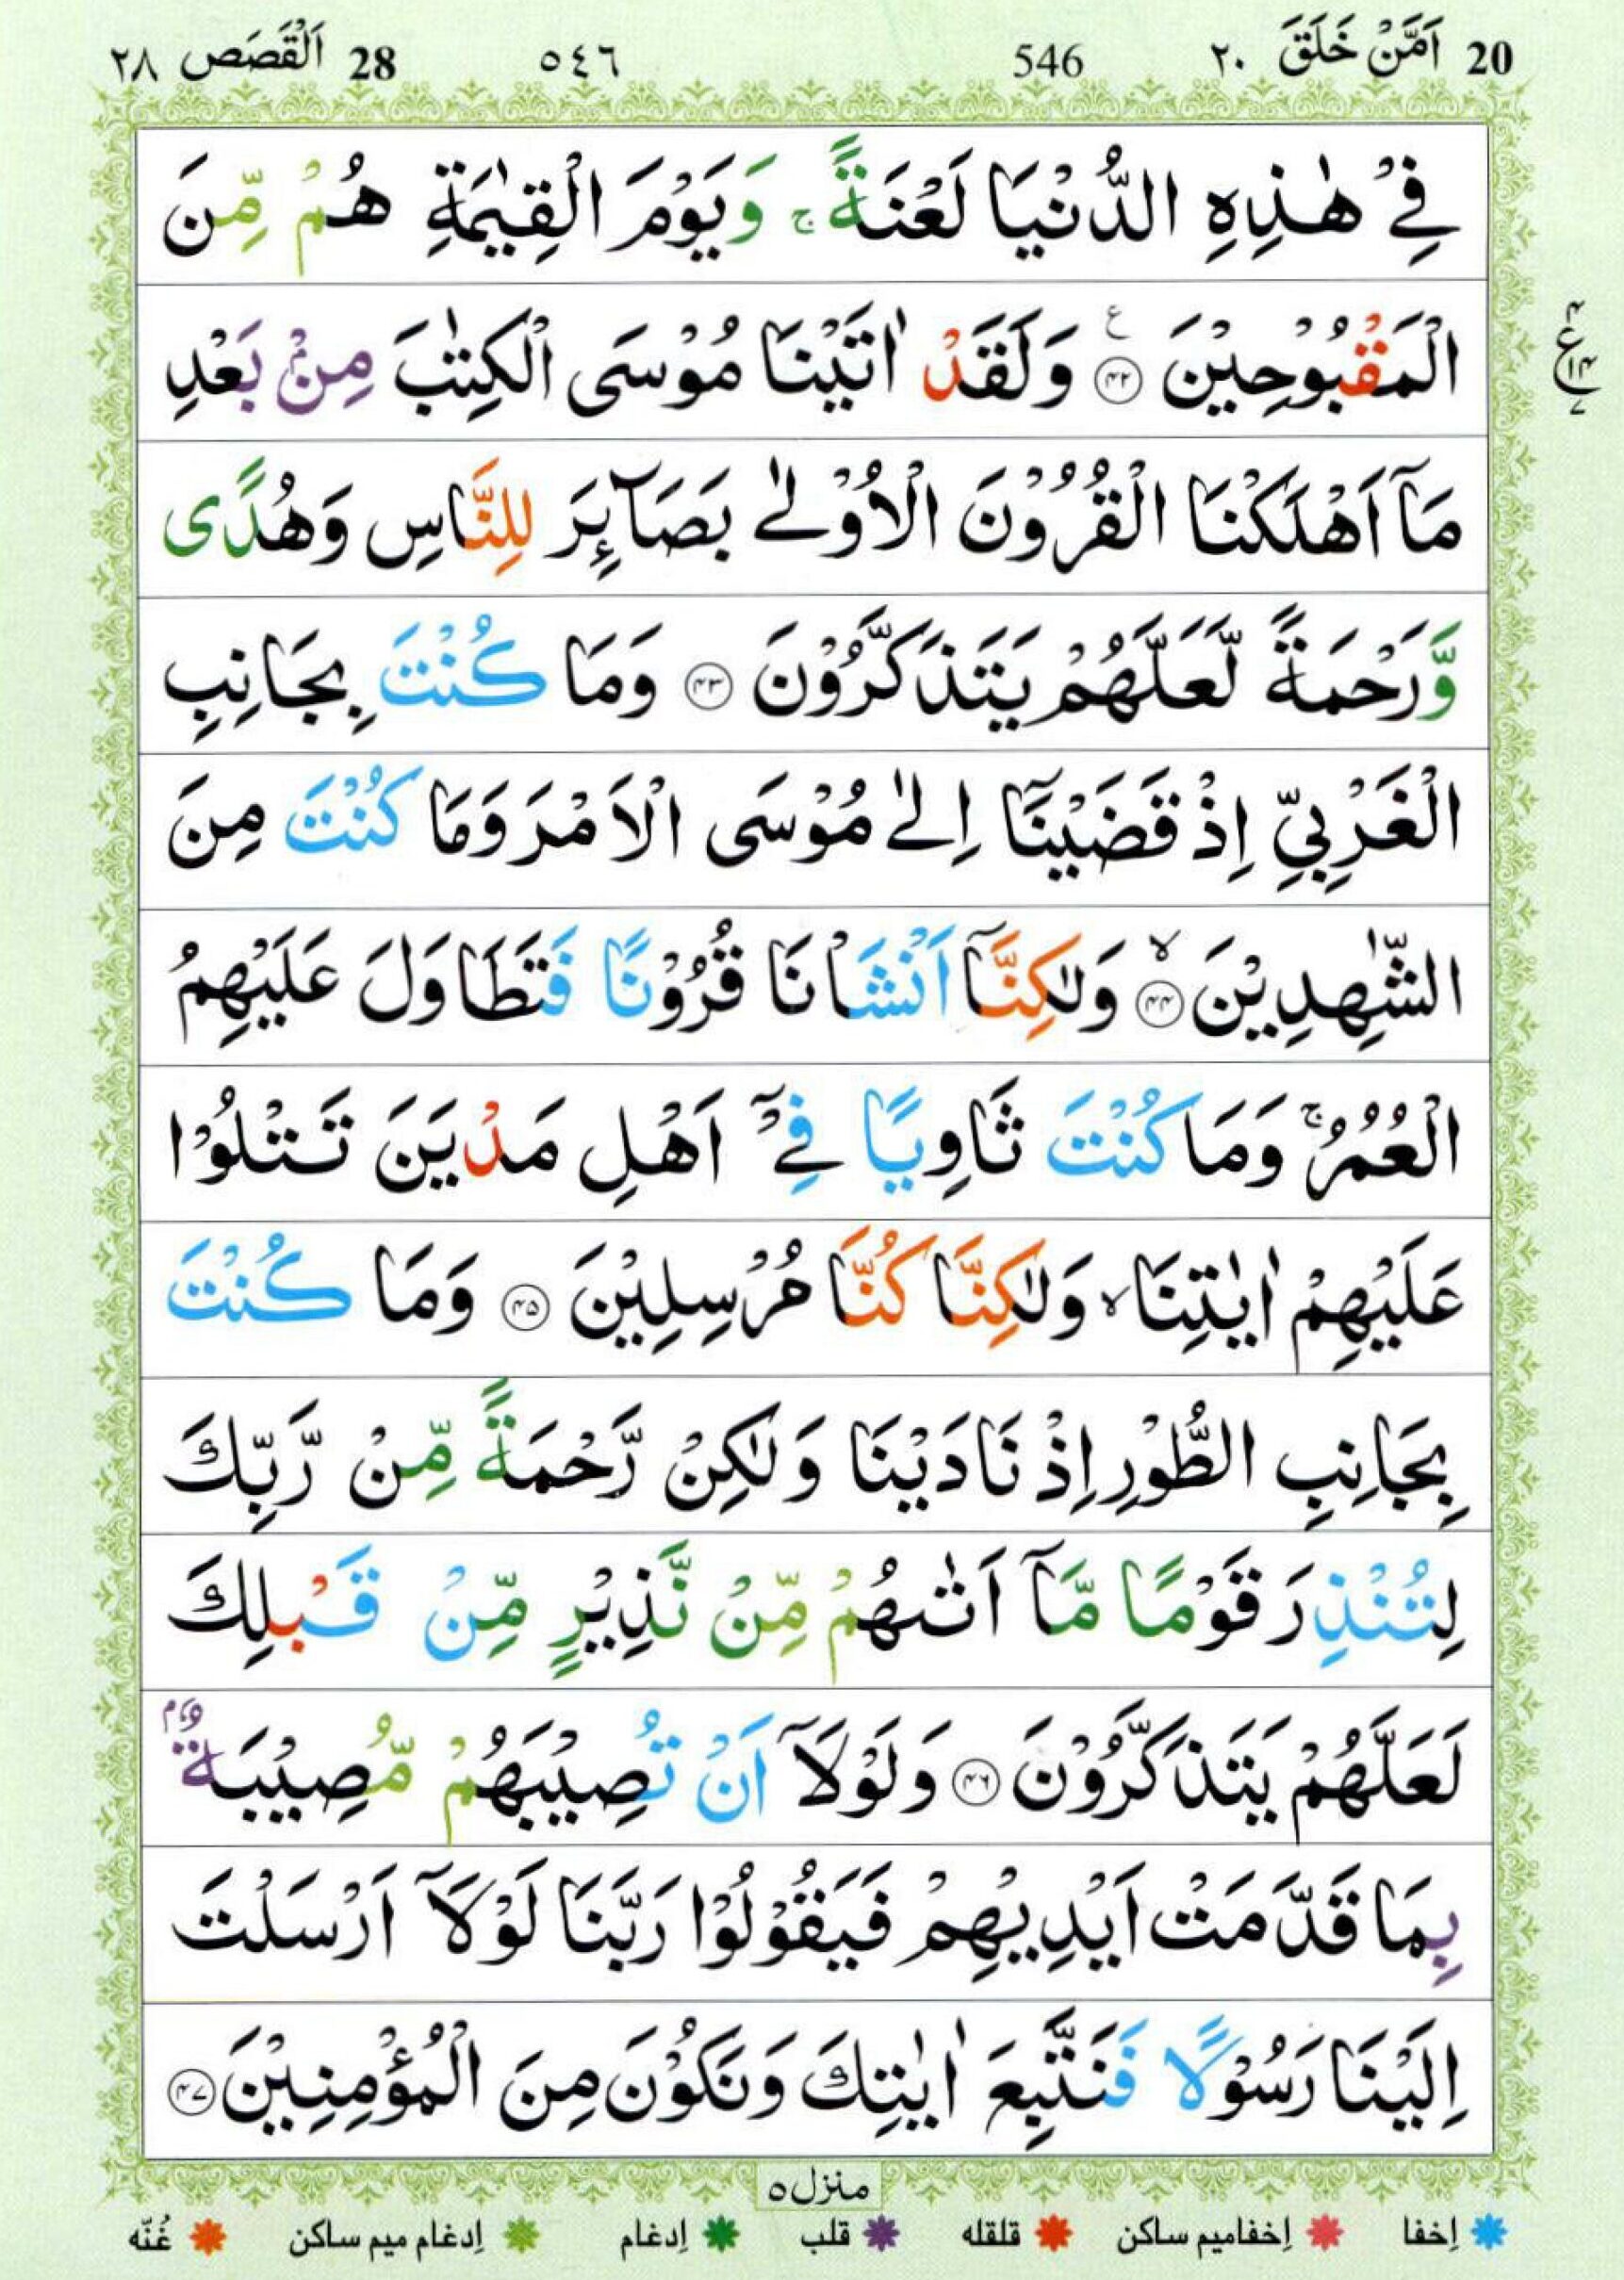 20 اَمَّنْ خَلَقَ ٢٠ 546 ٥٤٦ 28 اَلْقَصَص ٢٨
فِيْ هٰذِهِ الدُّنْيَا لَعْنَةً ۚ وَيَوْمَ الْقِيٰمَةِ هُمْ مِّنَ
الْمَقْبُوْحِيْنَ ﴿۴۲﴾ وَلَقَدْ اٰتَيْنَا مُوْسَى الْكِتٰبَ مِنْۢ بَعْدِ
مَاۤ اَهْلَكْنَا الْقُرُوْنَ الْاُوْلٰى بَصَآئِرَ لِلنَّاسِ وَهُدًى
وَّرَحْمَةً لَّعَلَّهُمْ يَتَذَكَّرُوْنَ ﴿۴۳﴾ وَمَا كُنْتَ بِجَانِبِ
الْغَرْبِيِّ اِذْ قَضَيْنَاۤ اِلٰى مُوْسَى الْاَمْرَ وَمَا كُنْتَ مِنَ
الشّٰهِدِيْنَ ۙ﴿۴۴﴾ وَلٰكِنَّاۤ اَنْشَاْنَا قُرُوْنًا فَتَطَاوَلَ عَلَيْهِمُ
الْعُمُرُ ۚ وَمَا كُنْتَ ثَاوِيًا فِيْۤ اَهْلِ مَدْيَنَ تَتْلُوْا
عَلَيْهِمْ اٰيٰتِنَا ۙ وَلٰكِنَّا كُنَّا مُرْسِلِيْنَ ﴿۴۵﴾ وَمَا كُنْتَ
بِجَانِبِ الطُّوْرِ اِذْ نَادَيْنَا وَلٰكِنْ رَّحْمَةً مِّنْ رَّبِّكَ
لِتُنْذِرَ قَوْمًا مَّاۤ اَتٰىهُمْ مِّنْ نَّذِيْرٍ مِّنْ قَبْلِكَ
لَعَلَّهُمْ يَتَذَكَّرُوْنَ ﴿۴۶﴾ وَلَوْلَاۤ اَنْ تُصِيْبَهُمْ مُّصِيْبَةٌۢ
بِمَا قَدَّمَتْ اَيْدِيْهِمْ فَيَقُوْلُوْا رَبَّنَا لَوْلَاۤ اَرْسَلْتَ
اِلَيْنَا رَسُوْلًا فَنَتَّبِعَ اٰيٰتِكَ وَنَكُوْنَ مِنَ الْمُؤْمِنِيْنَ ﴿۴۷﴾
منزل ٥
اِخفا اِخفامیم ساکن قلقله قلب اِدغام اِدغام میم ساکن غُنّه